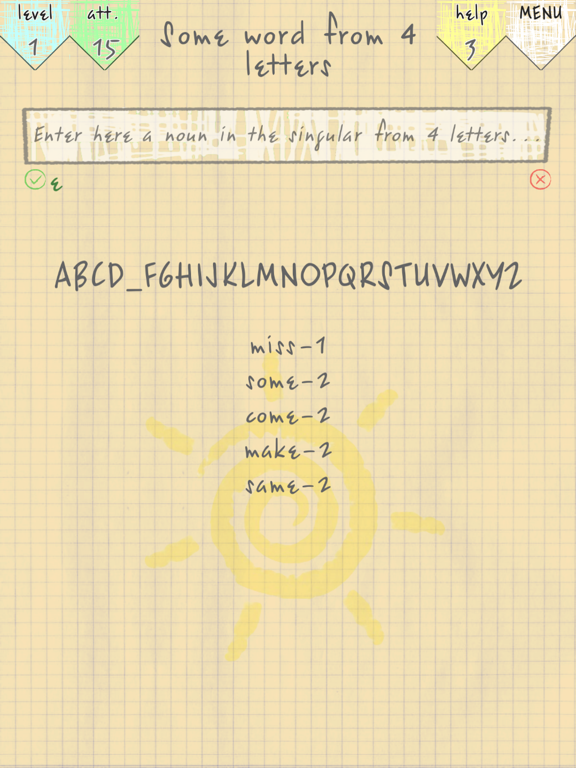 level att. Some word from 4 help MENU
1 15 letters 3
Enter here a noun in the singular from 4 letters...
e
ABCD_FGHIJKLMNOPQRSTUVWXYZ
miss-1
some-2
come-2
make-2
same-2